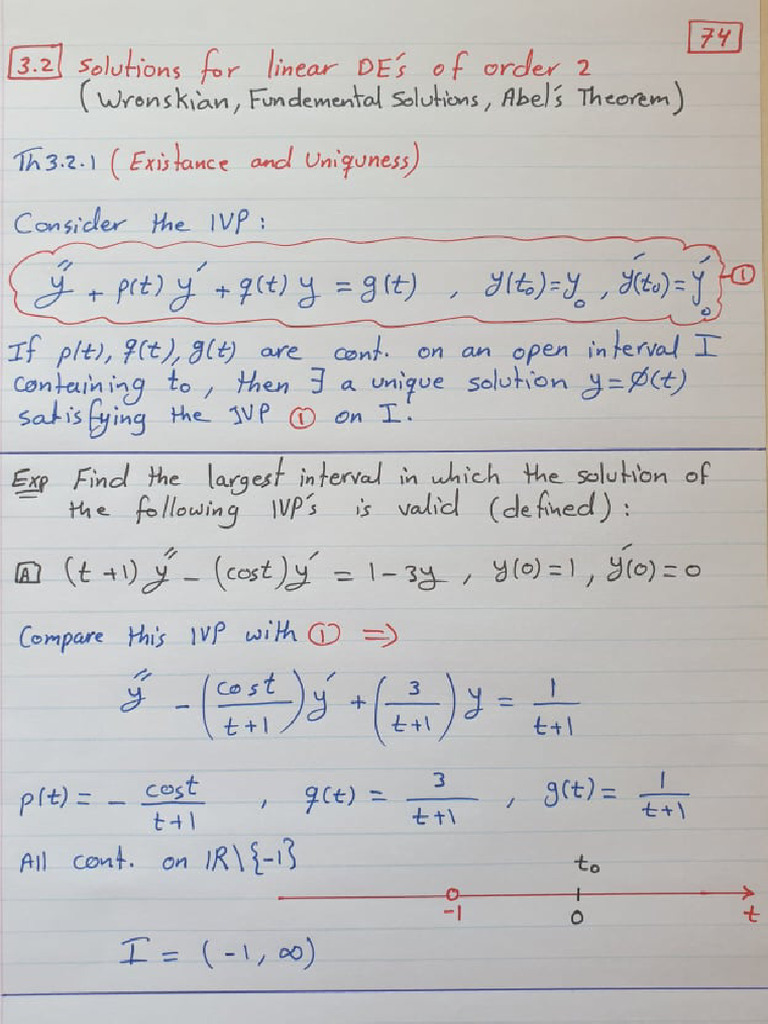 74
3.2 Solutions for linear DE's of order 2
(Wronskian, Fundemental Solutions, Abel's Theorem)
Th 3.2.1 (Existance and Uniquness)
Consider the IVP:
y″ + p(t) y′ + q(t) y = g(t) , y(t₀) = y₀ , y′(t₀) = y′₀ ①
If p(t), q(t), g(t) are cont. on an open interval I
containing to, then ∃ a unique solution y = Ø(t)
satisfying the IVP ① on I.
Exp Find the largest interval in which the solution of
the following IVP's is valid (defined):
A (t+1) y″ - (cost) y′ = 1 - 3y , y(0) = 1 , y′(0) = 0
Compare this IVP with ① ⇒
y″ - (cost/(t+1)) y′ + (3/(t+1)) y = 1/(t+1)
p(t) = - cost/(t+1) , q(t) = 3/(t+1) , g(t) = 1/(t+1)
All cont. on IR\{-1}
to
-1 0 t
I = (-1, ∞)